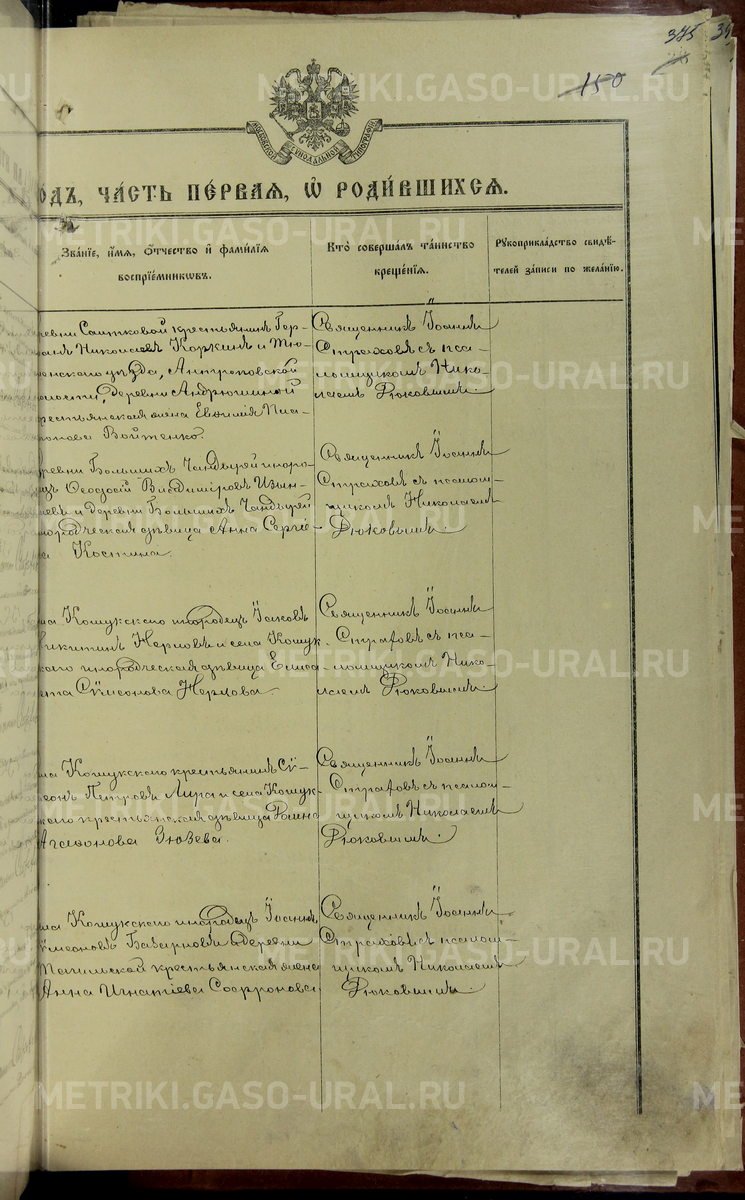 375 39
150
МОСКОВСКОЙ СѴНОДАЛЬНОЙ ТИПОГРАФІИ
ОДЪ, ЧА́СТЬ ПЕ́РВАЯ, Ѡ҆ РОДИ́ВШИХСЯ.
Зва́нїе, и҆́мя, ѻ҆́тчество и҆ фами́лїя
воспрїе́мникѡвъ.
Кто̀ соверша́лъ та́инство
креще́нїя.
Рꙋкоприкла́дство свидѣ́-
телей за́писи по жела́нїю.
ревни Саитковой крестьянинъ Гер-
манъ Николаевъ Коркинъ и Тю-
менского уѣзда, Антроповской
волости, деревни Андрюшиной
крестьянская жена Евѳимія Пла-
тонова Войтенко.
Священникъ Іоаннъ
Страховъ съ пса-
ломщикомъ Нико-
лаемъ Рюковымъ.
ревни Большихъ Чандырей иноро-
децъ Ѳеодосій Владиміровъ
и деревни Большихъ Чандырей
инородческая дѣвица Анна Сергіе-
ва Костина.
Священникъ Іоаннъ
Страховъ съ псалом-
щикомъ Николаемъ
Рюковымъ.
ла Кошукскаго инородецъ Іаковъ
Никитинъ Нерловъ и села Кошук-
скаго инородческая дѣвица Елиса-
вета Сѵмеонова Нерлова.
Священникъ Іоаннъ
Страховъ съ пса-
ломщикомъ Нико-
лаемъ Рюковымъ.
ла Кошукскаго крестьянинъ Сѵ-
меонъ Петровъ Лира и села Кошук-
скаго крестьянская дѣвица
Агаѳонова Зюзева.
Священникъ Іоаннъ
Страховъ съ псалом-
щикомъ Николаемъ
Рюковымъ.
ла Кошукскаго инородецъ Іоаннъ
Сѵмеоновъ и деревни
крестьянская жена
Анна Игнатіева Софронова.
Священникъ Іоаннъ
Страховъ съ псалом-
щикомъ Николаемъ
Рюковымъ.
METRIKI.GASO-URAL.RU